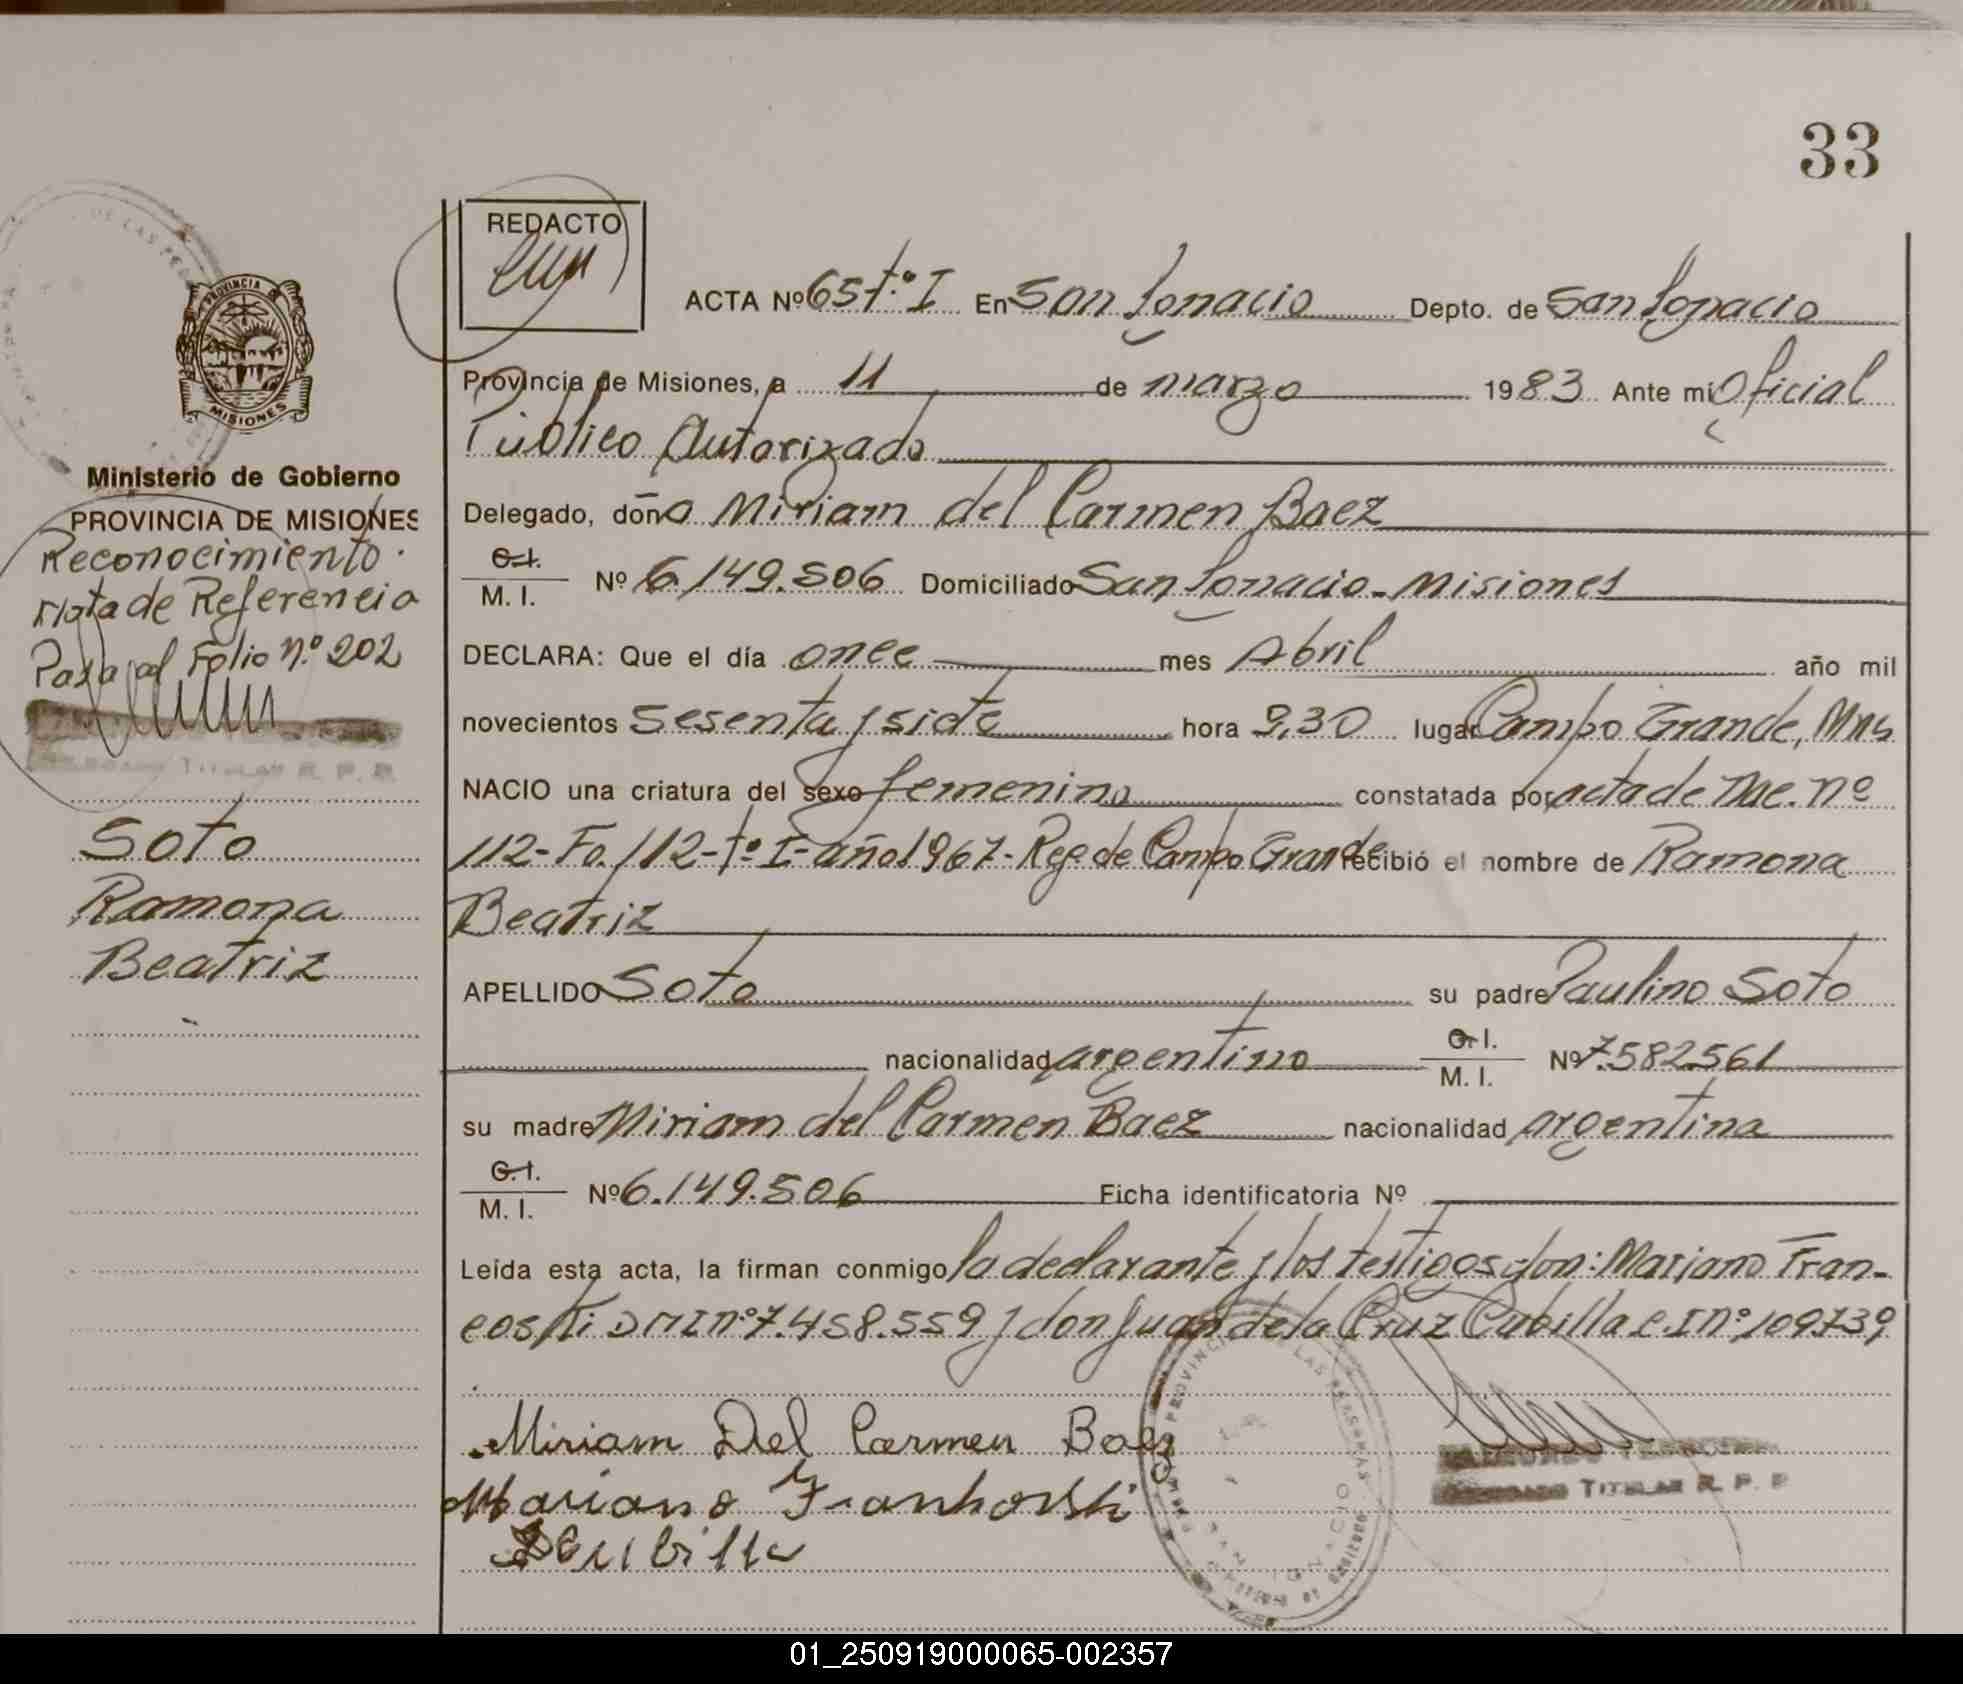 33
REDACTO
ACTA Nº 65 t.º I En San Ignacio Depto. de San Ignacio
Provincia de Misiones, a 11 de marzo 1983 Ante mi Oficial
Público Autorizado
Delegado, doña Miriam del Carmen Baez
C.I.
M. I. Nº 6.149.506 Domiciliado San Ignacio - Misiones
DECLARA: Que el día once mes Abril año mil
novecientos sesenta y siete hora 9,30 lugar Campo Grande, Mns
NACIO una criatura del sexo femenino constatada por acta de nac. nº
112- Fo. 112- tº I- año 1967- Reg. de Campo Grande recibió el nombre de Ramona
Beatriz
APELLIDO Soto su padre Paulino Soto
nacionalidad argentino C.I. M. I. Nº 7.582.561
su madre Miriam del Carmen Baez nacionalidad argentina
C.I.
M. I. Nº 6.149.506 Ficha identificatoria Nº
Leída esta acta, la firman conmigo la declarante y los testigos don: Mariano Fran-
coski DMI nº 7.458.559 y don Juan de la Cruz Cubilla C.I nº 109739
Miriam Del Carmen Baez
Mariano Frankoski
TITULAR R. P. P.
PROVINCIA DE MISIONES
Ministerio de Gobierno
PROVINCIA DE MISIONES
Reconocimiento.
Nota de Referencia
Pasa al Folio nº 202
TITULAR R. P. P.
Soto
Ramona
Beatriz
01_250919000065-002357